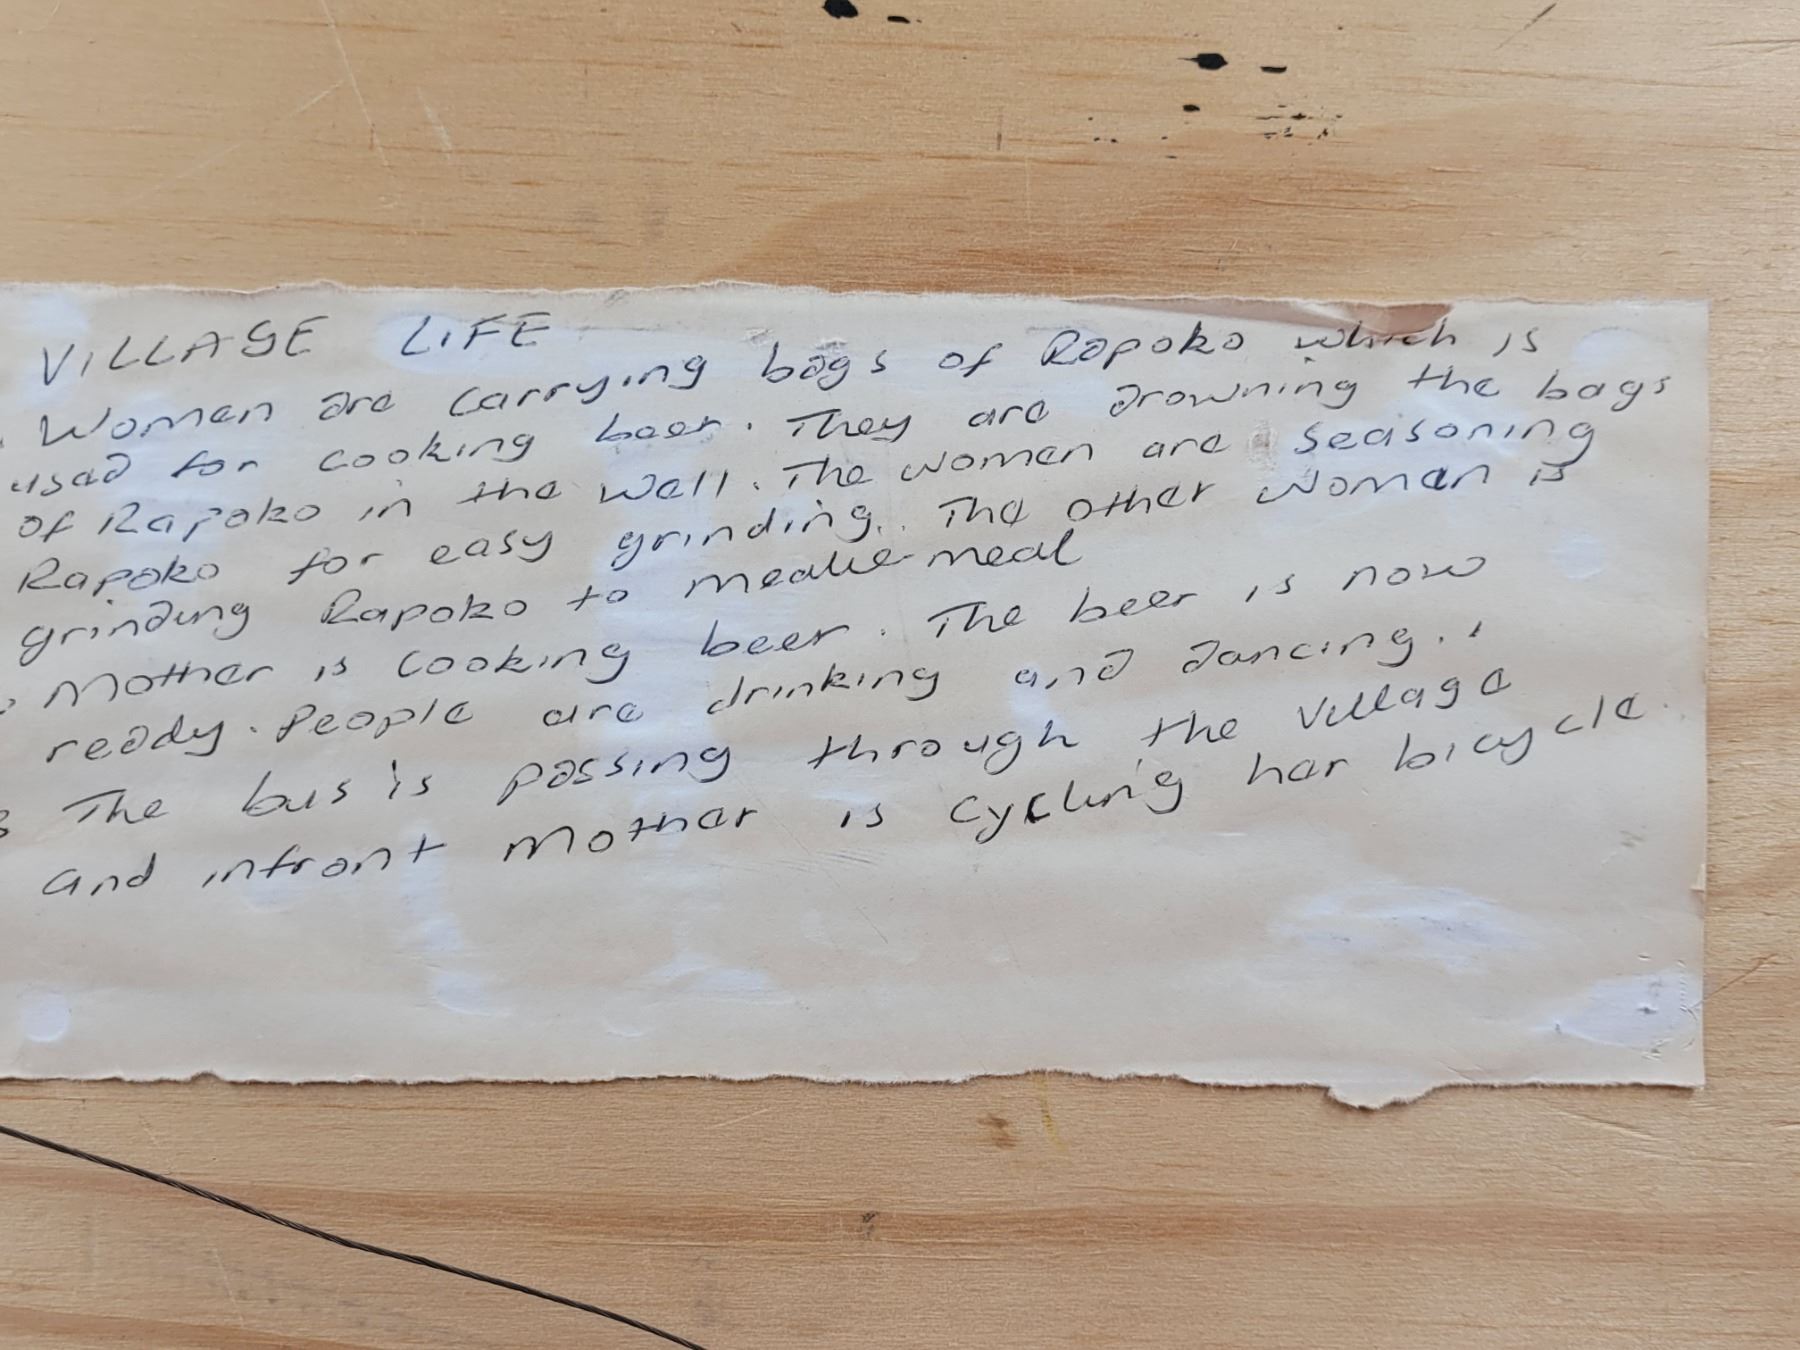 VILLAGE LIFE
. Women are carrying bags of Rapoko which is
used for cooking beer. They are drowning the bags
of Rapoko in the well. The women are seasoning
Rapoko for easy grinding. The other women is
grinding Rapoko to mealie-meal
Mother is cooking beer. The beer is now
ready. People are drinking and dancing.
3 The bus is passing through the village
and infront Mother is cycling her bicycle.